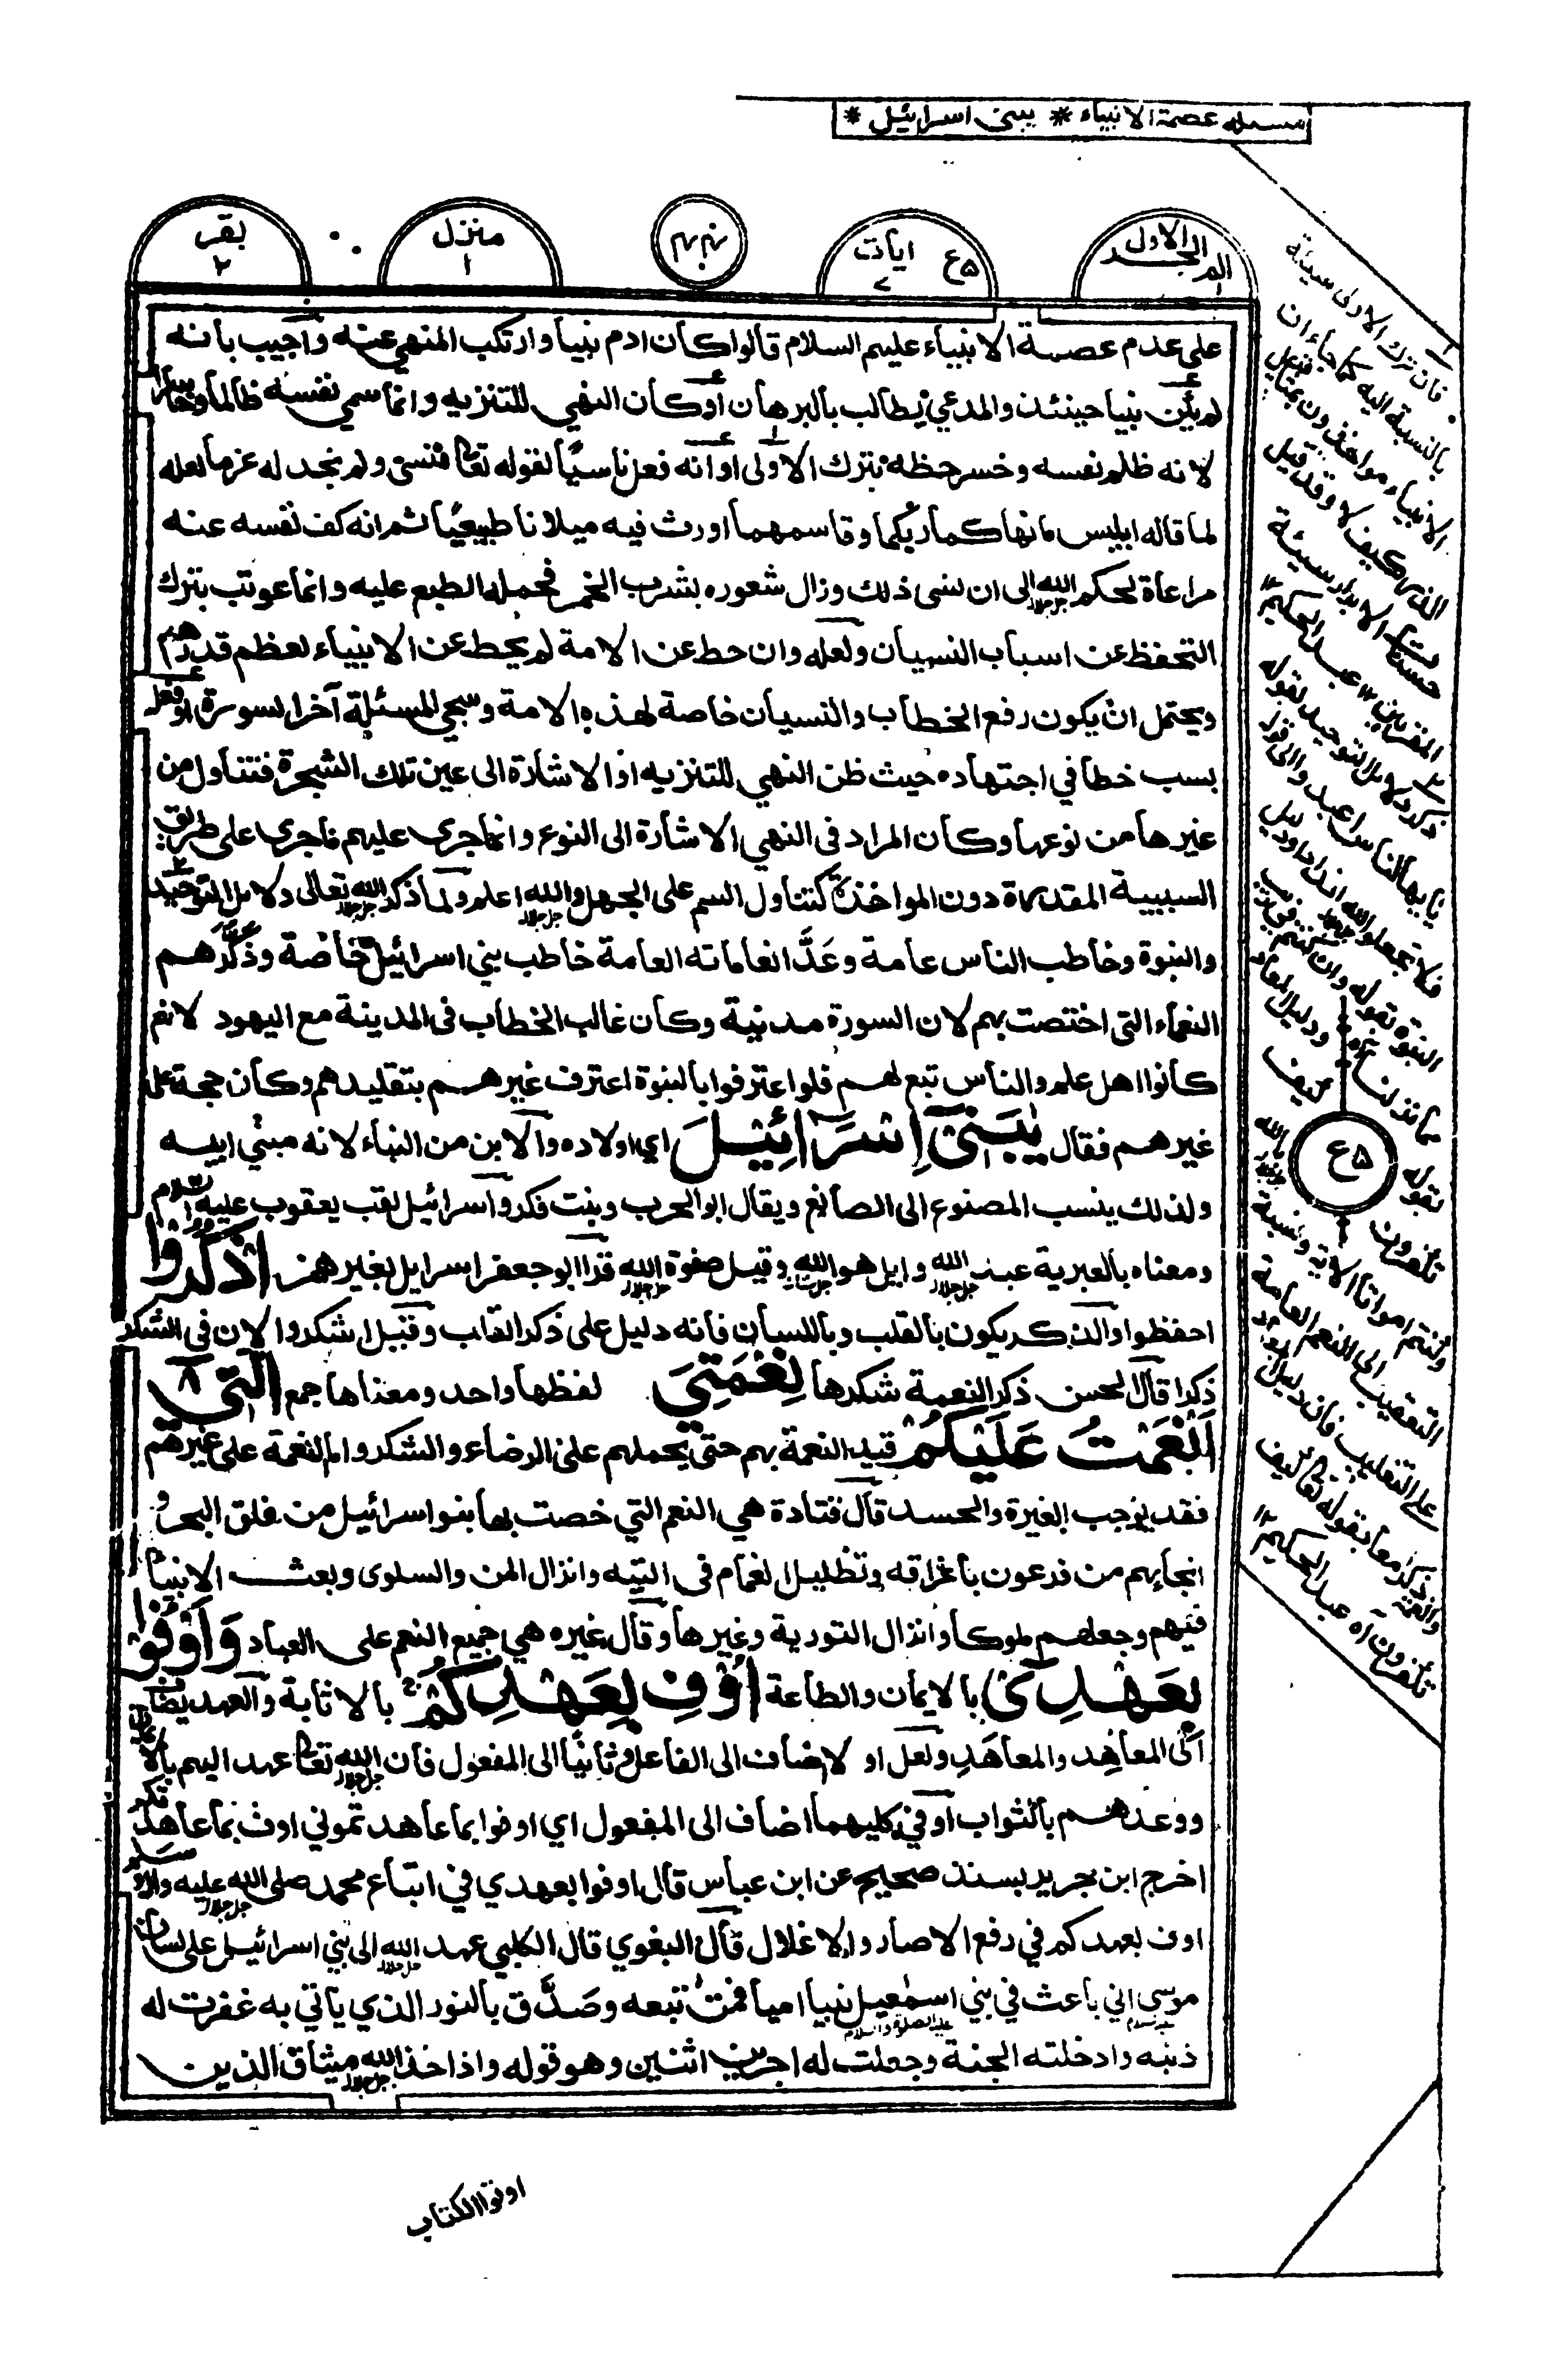 مسئله عصمة الانبياء * يبنى اسرائيل *
الم ١ الجزء الاول
ع ٥ ايات ٧
منزل ١
بقر ٢
على عدم عصمة الانبياء عليهم السلام قالوا كان ادم نبيا وارتكب المنهي عنه واجيب بانه
لم يكن نبيا حينئذ والمدعي يطالب بالبرهان او كان النهي للتنزيه وانما سمي نفسه ظالما وخاسرا
لانه ظلم نفسه وخسر حظه بترك الاولى او انه فعل ناسيا لقوله تعا فنسى ولم نجد له عزما لعله
لما قاله ابليس ما نهاكما ربكما وقاسمهما اورث فيه ميلانا طبيعيا ثم انه كف نفسه عنه
مراعاة لحكم الله جل جلاله الى ان نسى ذلك وزال شعوره بشرب الخمر فحمله الطبع عليه وانما عوتب بترك
التحفظ عن اسباب النسيان ولعله وان حط عن الامة لم يحط عن الانبياء لعظم قدرهم
ويحتمل ان يكون رفع الخطأ والنسيان خاصة لهذه الامة وسيجي المسئلة آخر السورة او فعل
بسبب خطأ في اجتهاده حيث ظن النهي للتنزيه او الاشارة الى عين تلك الشجرة فتناول من
غيرها من نوعها وكان المراد في النهي الاشارة الى النوع وانما جرى عليهم ما جرى على طريق
السببية المقدرة دون المواخذة كتناول السم على الجهل والله جل جلاله اعلم ولما ذكر الله جل جلاله تعالى دلائل التوحيد
والنبوة وخاطب الناس عامة وعَدَّ انعاماته العامة خاطب بني اسرائيل خاصة وذكّرهم
النعماء التي اختصت بهم لان السورة مدنية وكان غالب الخطاب في المدينة مع اليهود لانهم
كانوا اهل علم والناس تبع لهم فلو اعترفوا بالنبوة اعترف غيرهم بتقليدهم وكان حجة على
غيرهم فقال يٰبَنِيْٓ اِسْرَآئِيْلَ اي اولاده والابن من البناء لانه مبني ابيه
ولذلك ينسب المصنوع الى الصانع ويقال ابو الحرب وبنت فكر واسرائيل لقب يعقوب عليه السلام
ومعناه بالعبرية عبد الله جل جلاله وايل هو الله وقيل صفوة الله جل جلاله قرأ ابو جعفر اسرايل بغير همز اذْكُرُوْا
احفظوا والذكر يكون بالقلب وباللسان فانه دليل على ذكر القلب وقيل اشكروا لان في الشكر
ذكرا قال الحسن ذكر النعمة شكرها نِعْمَتِيَ لفظها واحد ومعناها جمع الَّتِيْٓ
اَنْعَمْتُ عَلَيْكُمْ قيد النعمة بهم حتى يحملهم على الرضاء والشكر واما النعمة على غيرهم
فقد يوجب الغيرة والحسد قال قتادة هي النعم التي خصت بها بنو اسرائيل من فلق البحر و
انجائهم من فرعون باغراقه وتظليل الغمام في التيه وانزال المن والسلوى وبعث الانبياء
فيهم وجعلهم ملوكا وانزال التورية وغيرها وقال غيره هي جميع النعم على العباد وَاَوْفُوْا
بِعَهْدِيْٓ بالايمان والطاعة اُوْفِ بِعَهْدِكُمْ بالاثابة والعهد يضاف
الى المعاهِد والمعاهَد ولعل اولا ضاف الى الفاعل وثانيا الى المفعول فان الله جل جلاله تعا عهد اليهم بالايمان
ووعدهم بالثواب او في كليهما اضاف الى المفعول اي اوفوا بما عاهدتموني اوف بما عاهدتكم
اخرج ابن جرير بسند صحيح عن ابن عباس قال اوفوا بعهدي في اتباع محمد صلى الله جل جلاله عليه واله وسلم
اوف بعهدكم في رفع الاصار والاغلال قال البغوي قال الكلبي عهد الله جل جلاله الى بني اسرائيل على لسان
موسى عليه السلام اني باعث في بني اسمعيل عليه الصلوة والسلام نبيا اميا فمن تبعه وصدَّق بالنور الذي ياتي به غفرت له
ذنبه وادخلته الجنة وجعلت له اجرين اثنين وهو قوله واذ اخذ الله جل جلاله ميثاق الذين
اوتوا الكتاب
فان ترك الاولى سيئة
بالنسبة اليه كما جاء ان
الانبياء مواخذون بمثاقيل
الذر كيف لا وقد قيل
حسنات الابرار سيئات
المقربين ١٢ عبد الحكيم ١٢
ذكر دلائل التوحيد بقوله
يايها الناس اعبدوا الى قوله
فلا تجعلوا لله اندادا ودليل
النبوة بقوله وان كنتم في ريب
مما نزلنا ودليل المعاد
ع ٥
بقوله كيف
تكفرون بالله
وكنتم امواتا الاية